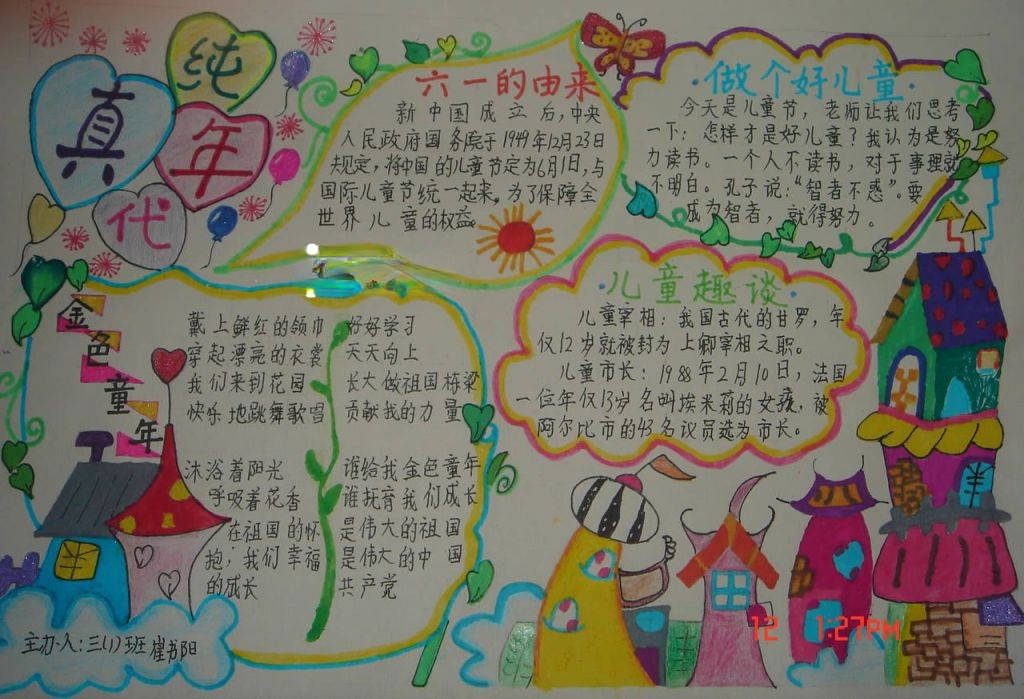 纯真年代
六一的由来
新中国成立后,中央
人民政府国务院于1949年12月23日
规定,将中国的儿童节定为6月1日,与
国际儿童节统一起来。为了保障全
世界儿童的权益。
·做个好儿童·
今天是儿童节,老师让我们思考
一下:怎样才是好儿童?我认为是努
力读书。一个人不读书,对于事理就
不明白。孔子说:“智者不惑”。要
成为智者,就得努力。
金色童年
戴上鲜红的领巾
穿起漂亮的衣裳
我们来到花园
快乐地跳舞歌唱
好好学习
天天向上
长大做祖国栋梁
贡献我的力量
沐浴着阳光
呼吸着花香
在祖国的怀
抱,我们幸福
的成长
谁给我金色童年
谁抚育我们成长
是伟大的祖国
是伟大的中国
共产党
·儿童趣谈·
儿童宰相:我国古代的甘罗,年
仅12岁就被封为上卿宰相之职。
儿童市长:1988年2月10日,法国
一位年仅13岁名叫埃米莉的女孩,被
阿尔比市的43名议员选为市长。
主办人:三(1)班崔书阳
12 1:27PM